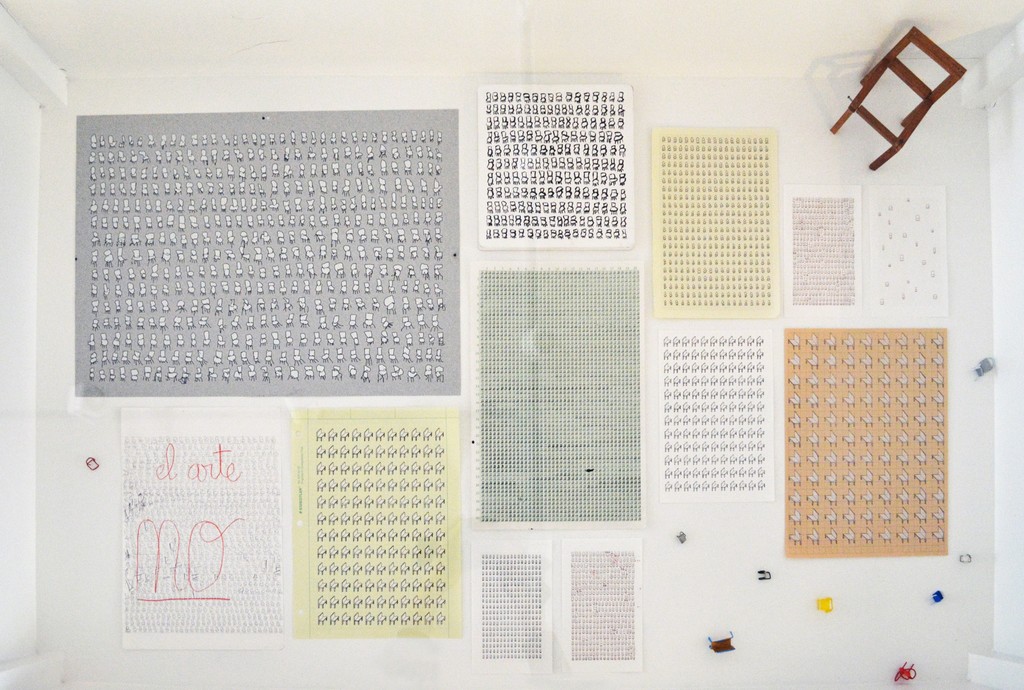 el arte
no